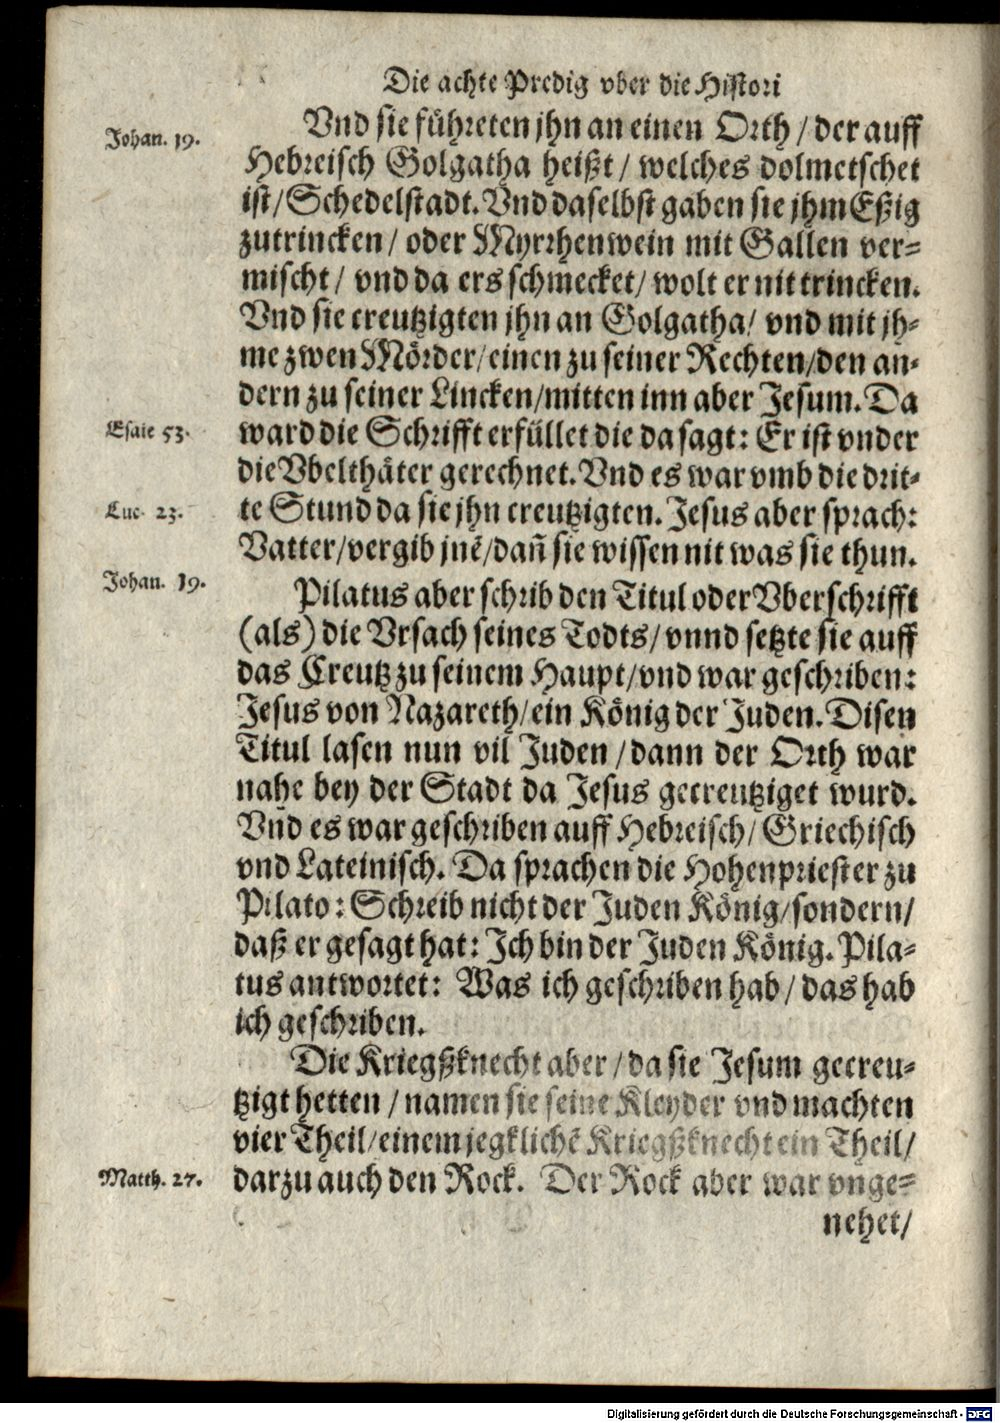 Die achte Predig vber die Histori
Johan. 19.
Vnd sie führeten jhn an einen Orth / der auff
Hebreisch Golgatha heißt / welches dolmetschet
ist / Schedelstadt. Vnd daselbst gaben sie jhm Eßig
zutrincken / oder Myrrhenwein mit Gallen ver=
mischt / vnd da ers schmecket / wolt er nit trincken.
Vnd sie creutzigten jhn an Golgatha / vnd mit jh=
me zwen Mörder / einen zu seiner Rechten / den an=
dern zu seiner Lincken / mitten inn aber Jesum. Da
Esaie 53.
ward die Schrifft erfüllet die da sagt: Er ist vnder
die Vbelthäter gerechnet. Vnd es war vmb die drit=
Luc. 23.
te Stund da sie jhn creutzigten. Jesus aber sprach:
Vatter / vergib jnē / dañ sie wissen nit was sie thun.
Johan. 19.
Pilatus aber schrib den Titul oder Vberschrifft
(als) die Vrsach seines Todts / vnnd setzte sie auff
das Creutz zu seinem Haupt / vnd war geschriben:
Jesus von Nazareth / ein König der Juden. Disen
Titul lasen nun vil Juden / dann der Orth war
nahe bey der Stadt da Jesus gecreutziget wurd.
Vnd es war geschriben auff Hebreisch / Griechisch
vnd Lateinisch. Da sprachen die Hohenpriester zu
Pilato: Schreib nicht der Juden König / sondern /
daß er gesagt hat: Ich bin der Juden König. Pila=
tus antwortet: Was ich geschriben hab / das hab
ich geschriben.
Die Kriegßknecht aber / da sie Jesum gecreu=
tzigt hetten / namen sie seine Kleyder vnd machten
vier Theil / einem jegklichē Kriegßknecht ein Theil /
Matth. 27.
darzu auch den Rock. Der Rock aber war vnge=
nehet /
Digitalisierung gefördert durch die Deutsche Forschungsgemeinschaft - DFG